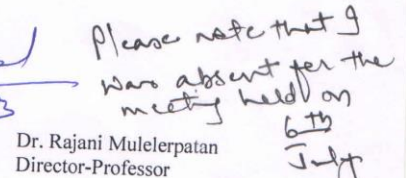 Please note that I
was absent for the
meeting held on
6th
July
Dr. Rajani Mulelerpatan
Director-Professor